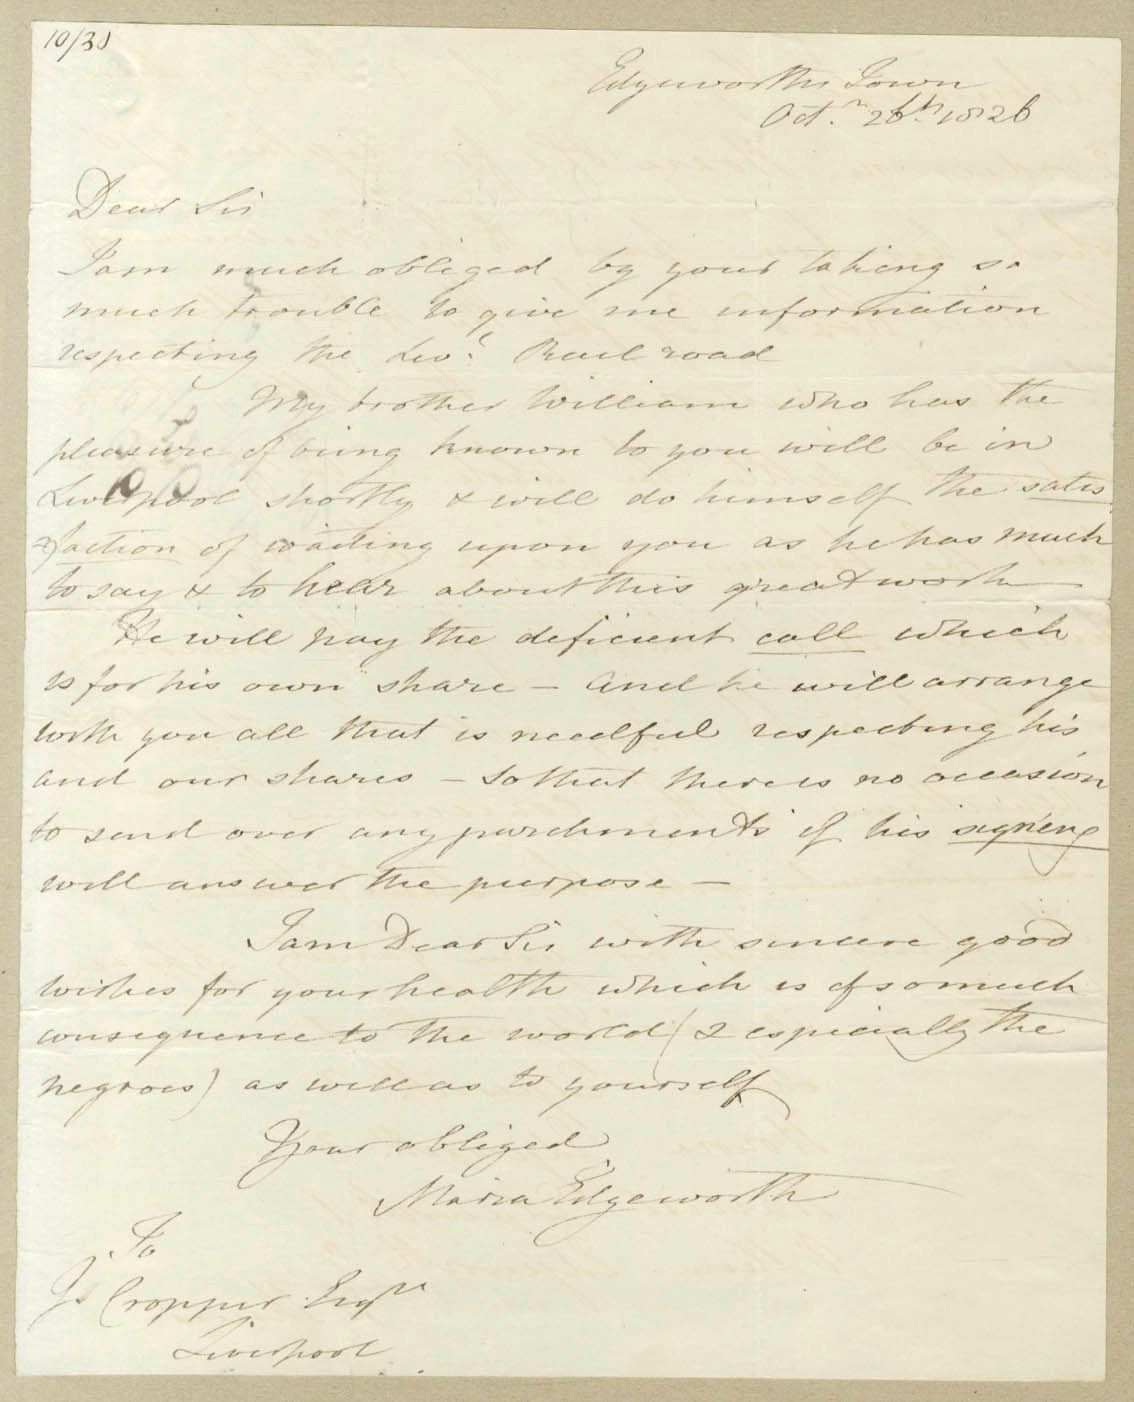 10/30
Edgeworths Town
Oct.r 26th 1826
Dear Sir
I am much obliged by your taking so
much trouble to give me information
respecting the Liv.l Rail road
My brother William who has the
pleasure of being known to you will be in
Liverpool shortly & will do himself the satis
=faction of waiting upon you as he has much
to say & to hear about this great work
He will pay the deficient call which
is for his own share - And he will arrange
with you all that is needful respecting his
and our shares - So that there is no occasion
to send over any parchments if his signing
will answer the purpose -
I am Dear Sir with sincere good
wishes for your health which is of so much
consequence to the world (& especially the
negroes) as well as to yourself
Your obliged
Maria Edgeworth
To
Js Cropper Esqr
Liverpool